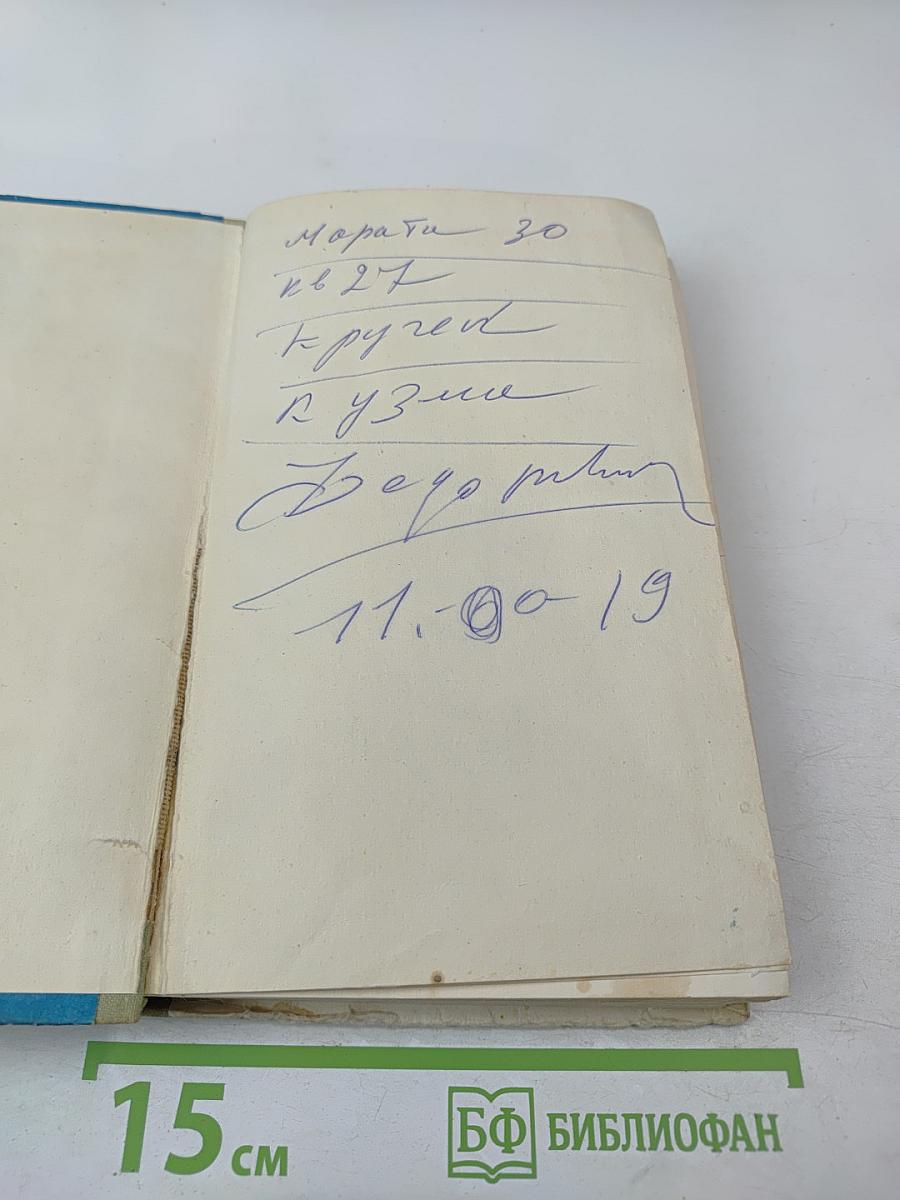 Марата 30
кв 27
Кручек
Кузма
Федорович
11.-00-19
15 см
БФ БИБЛИОФАН